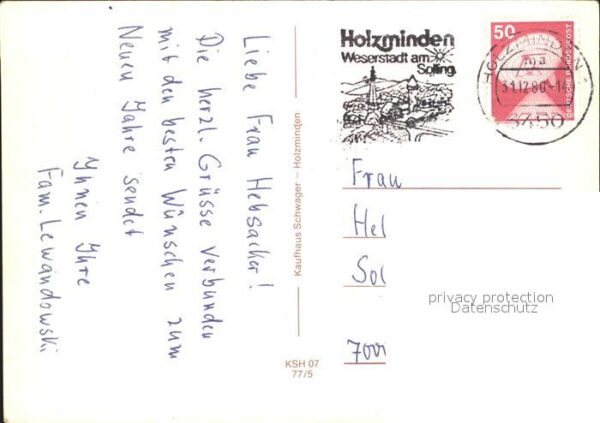 Liebe Frau Hebsacker!
Die herzl. Grüsse verbunden
mit den besten Wünschen zum
Neuen Jahre sendet
Ihnen Ihre
Fam. Lewandowski
Kaufhaus Schwager – Holzminden
KSH 07
77/5
Holzminden
Weserstadt am
Solling
HOLZMINDEN
ma
31.12.80-14
3450
50
DEUTSCHE BUNDESPOST
Frau
Hel
Sol
700
privacy protection
Datenschutz